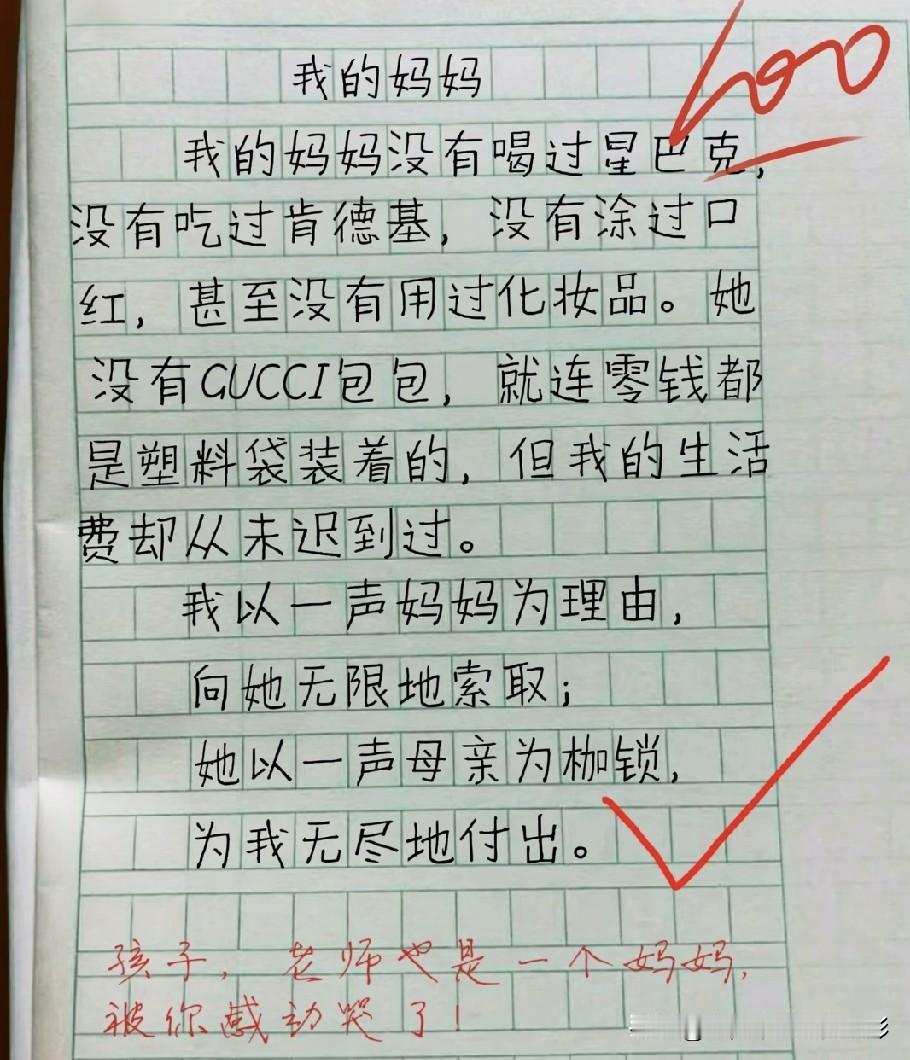 100
我的妈妈
我的妈妈没有喝过星巴克,
没有吃过肯德基,没有涂过口
红,甚至没有用过化妆品。她
没有GUCCI包包,就连零钱都
是塑料袋装着的,但我的生活
费却从未迟到过。
我以一声妈妈为理由,
向她无限地索取;
她以一声母亲为枷锁,
为我无尽地付出。
孩子,老师也是一个妈妈,
被你感动哭了!